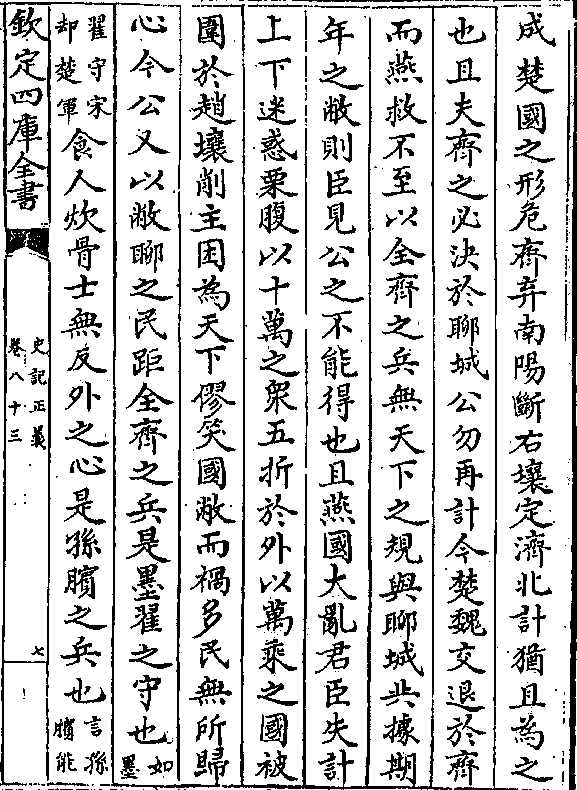 成楚國之形危齊弃南陽斷右壤定濟北計猶且為之
也且夫齊之必決於聊城公勿再計今楚魏交退於齊
而燕救不至以全齊之兵無天下之規與聊城共據期
年之敝則臣見公之不能得也且燕國大亂君臣失計
上下迷惑栗腹以十萬之衆五折於外以萬乘之國被
圍於趙壤削主困為天下僇笑國敝而禍多民無所歸
心今公又以敝聊之民距全齊之兵是墨翟之守也如墨
翟守宋却楚軍食人炊骨士無反外之心是孫臏之兵也言孫臏能
欽定四庫全書
史記正義
卷八十三
七